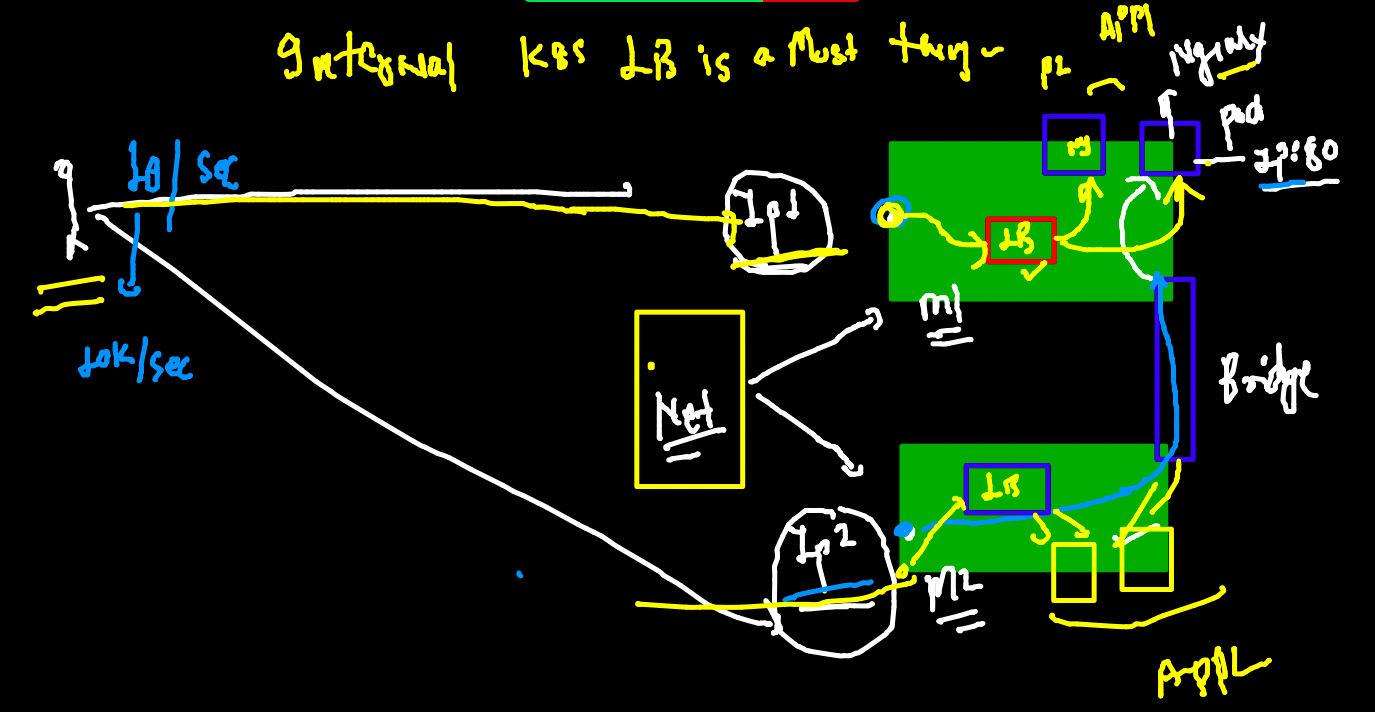 Internal K8S LB is a Must thing
P2
App1
Nginx
Pod
IP:80
10/sec
10K/sec
Ip1
LB
M1
Net
Bridge
LB
Ip2
M2
App2